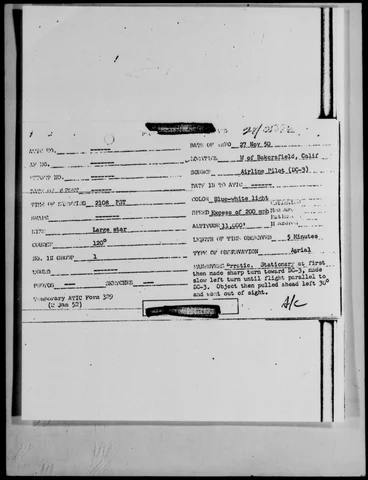 ATIC NO. ------
AF NO. ------
REPORT NO. ------
DATE OF REPORT ------
TIME OF SIGHTING 2108 PST
SHAPE ------
SIZE Large star
COURSE 120°
NO. IN GROUP 1
SOUND ------
PHOTOS --- SKETCHES ---
Temporary ATIC Form 329
(2 Jan 52)
DATE OF INFO 27 Nov 50
LOCATION W of Bakersfield, Calif
SOURCE Airline Pilot (DC-3)
DATE IN TO ATIC ------
COLOR Blue-white light
SPEED Excess of 200 mph
ALTITUDE
LENGTH OF TIME OBSERVED 5 Minutes
TYPE OF OBSERVATION Aerial
MANEUVERS Erratic. Stationary at first
then made sharp turn toward DC-3, made
slow left turn until flight parallel to
DC-3. Object then pulled ahead left 30°
and went out of sight.
A/c